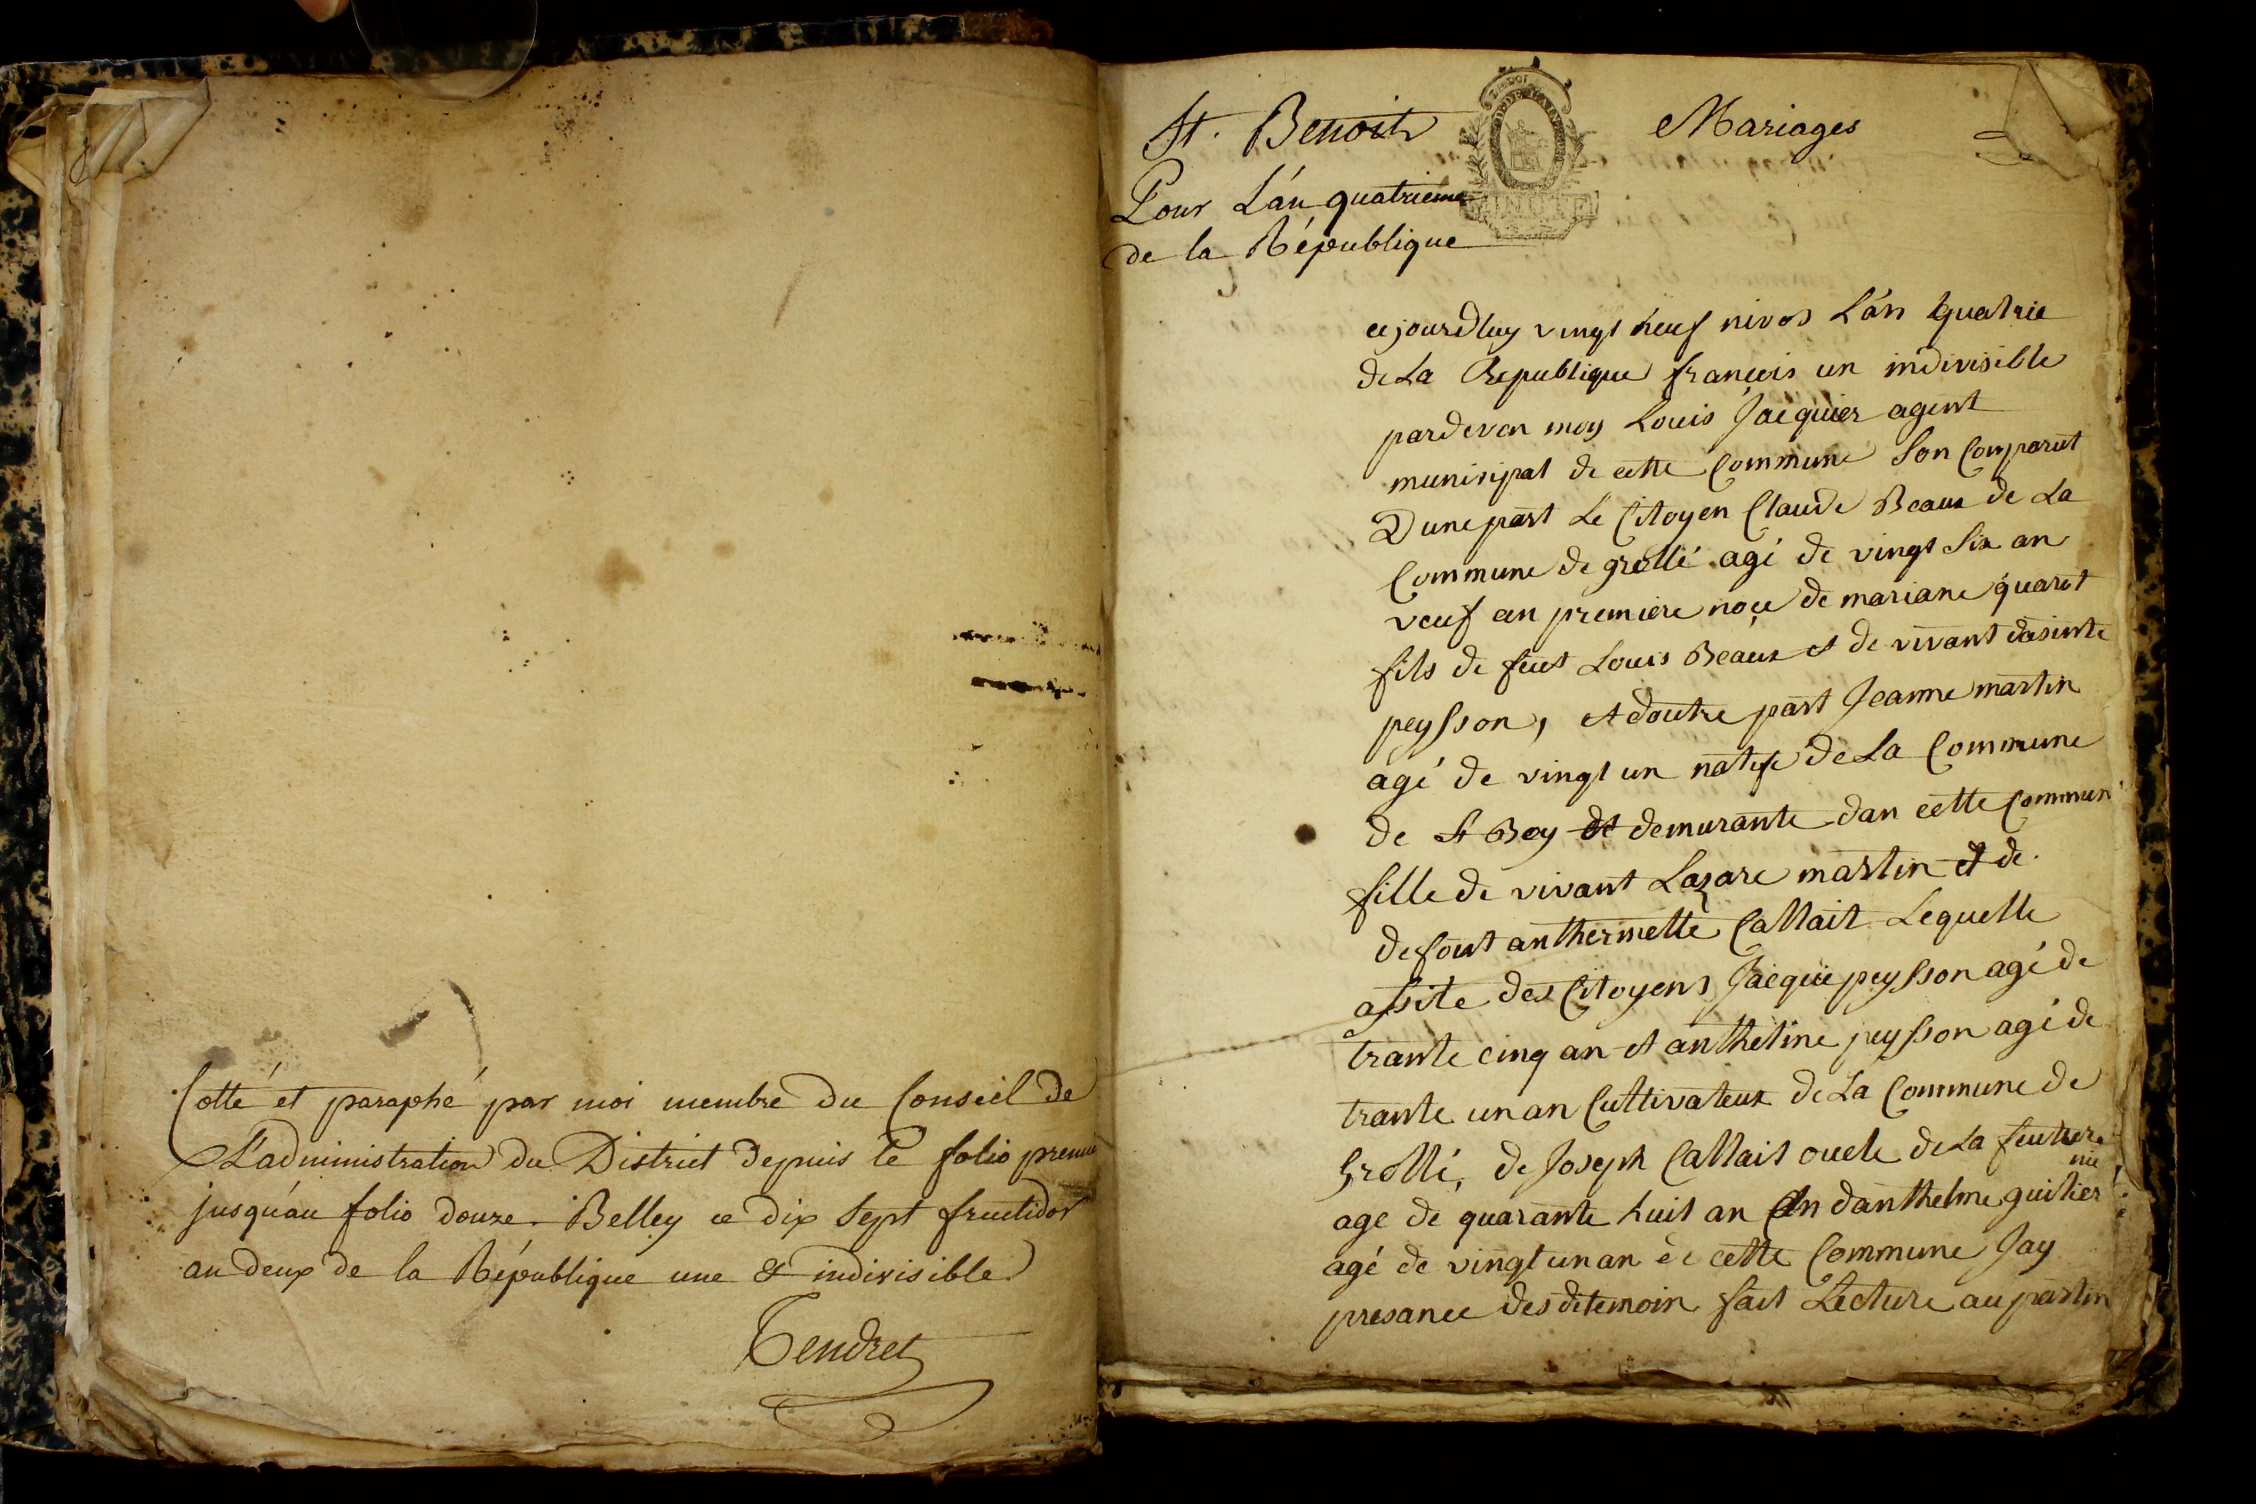 Cotté et paraphé par moi membre du Conseil de
L'administration du District depuis le folio premier
jusqu'au folio douze. Belley ce dix sept fructidor
an deux de la République une & indivisible
Tendret
St. Benoit
Mariages
Pour L'an quatrieme
de la République
cejourdhuy vingt neuf nivos L'an quatrie
de La Republique françois un indivisible
pardevan moy Louis Jacquier agent
municipal de cette Commune Son Comparut
Dune part Le Citoyen Claude Beaux de La
Commune de grollé agé de vingt Six an
veuf en premiere noce de mariane quarot
fils de feut Louis Beaux et de vivant
peysson, et doutre part Jeanne martin
agé de vingt un natife de La Commune
de St Boy et demurante dan cette Commune
fille de vivant Lazare martin et de
defout anthermette Callait Lequelle
assite des Citoyens Jacque peysson agé de
trante cinq an et anthelme peysson agé de
trante un an Cultivateux de La Commune de
Grollé, de Joseph Callait oncle de La
age de quarante huit an danthelme guilier
agé de vingt un an de cette Commune Jay
presance des temoin fait Lecture au partin